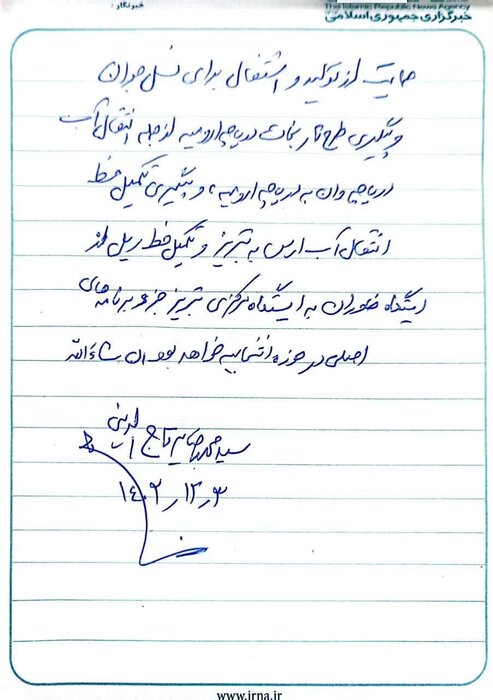 خبرنگار :
The Islamic Republic News Agency
خبرگزاری جمهوری اسلامی
حمایت از تولید و اشتغال برای نسل جوان
و پیگیری طرح نجات دریاچه ارومیه از جمله انتقال آب
دریاچه وان به دریاچه ارومیه، و پیگیری تکمیل خط
انتقال آب ارس به تبریز و تکمیل خط ریل از
ایستگاه خاوران به ایستگاه مرکزی تبریز جزء برنامه های
اصلی در حوزه انتخابیه خواهد بود ان شاءالله
سید محمدرضا میرتاج الدینی
۱۴۰۲٫۱۲٫۳
www.irna.ir